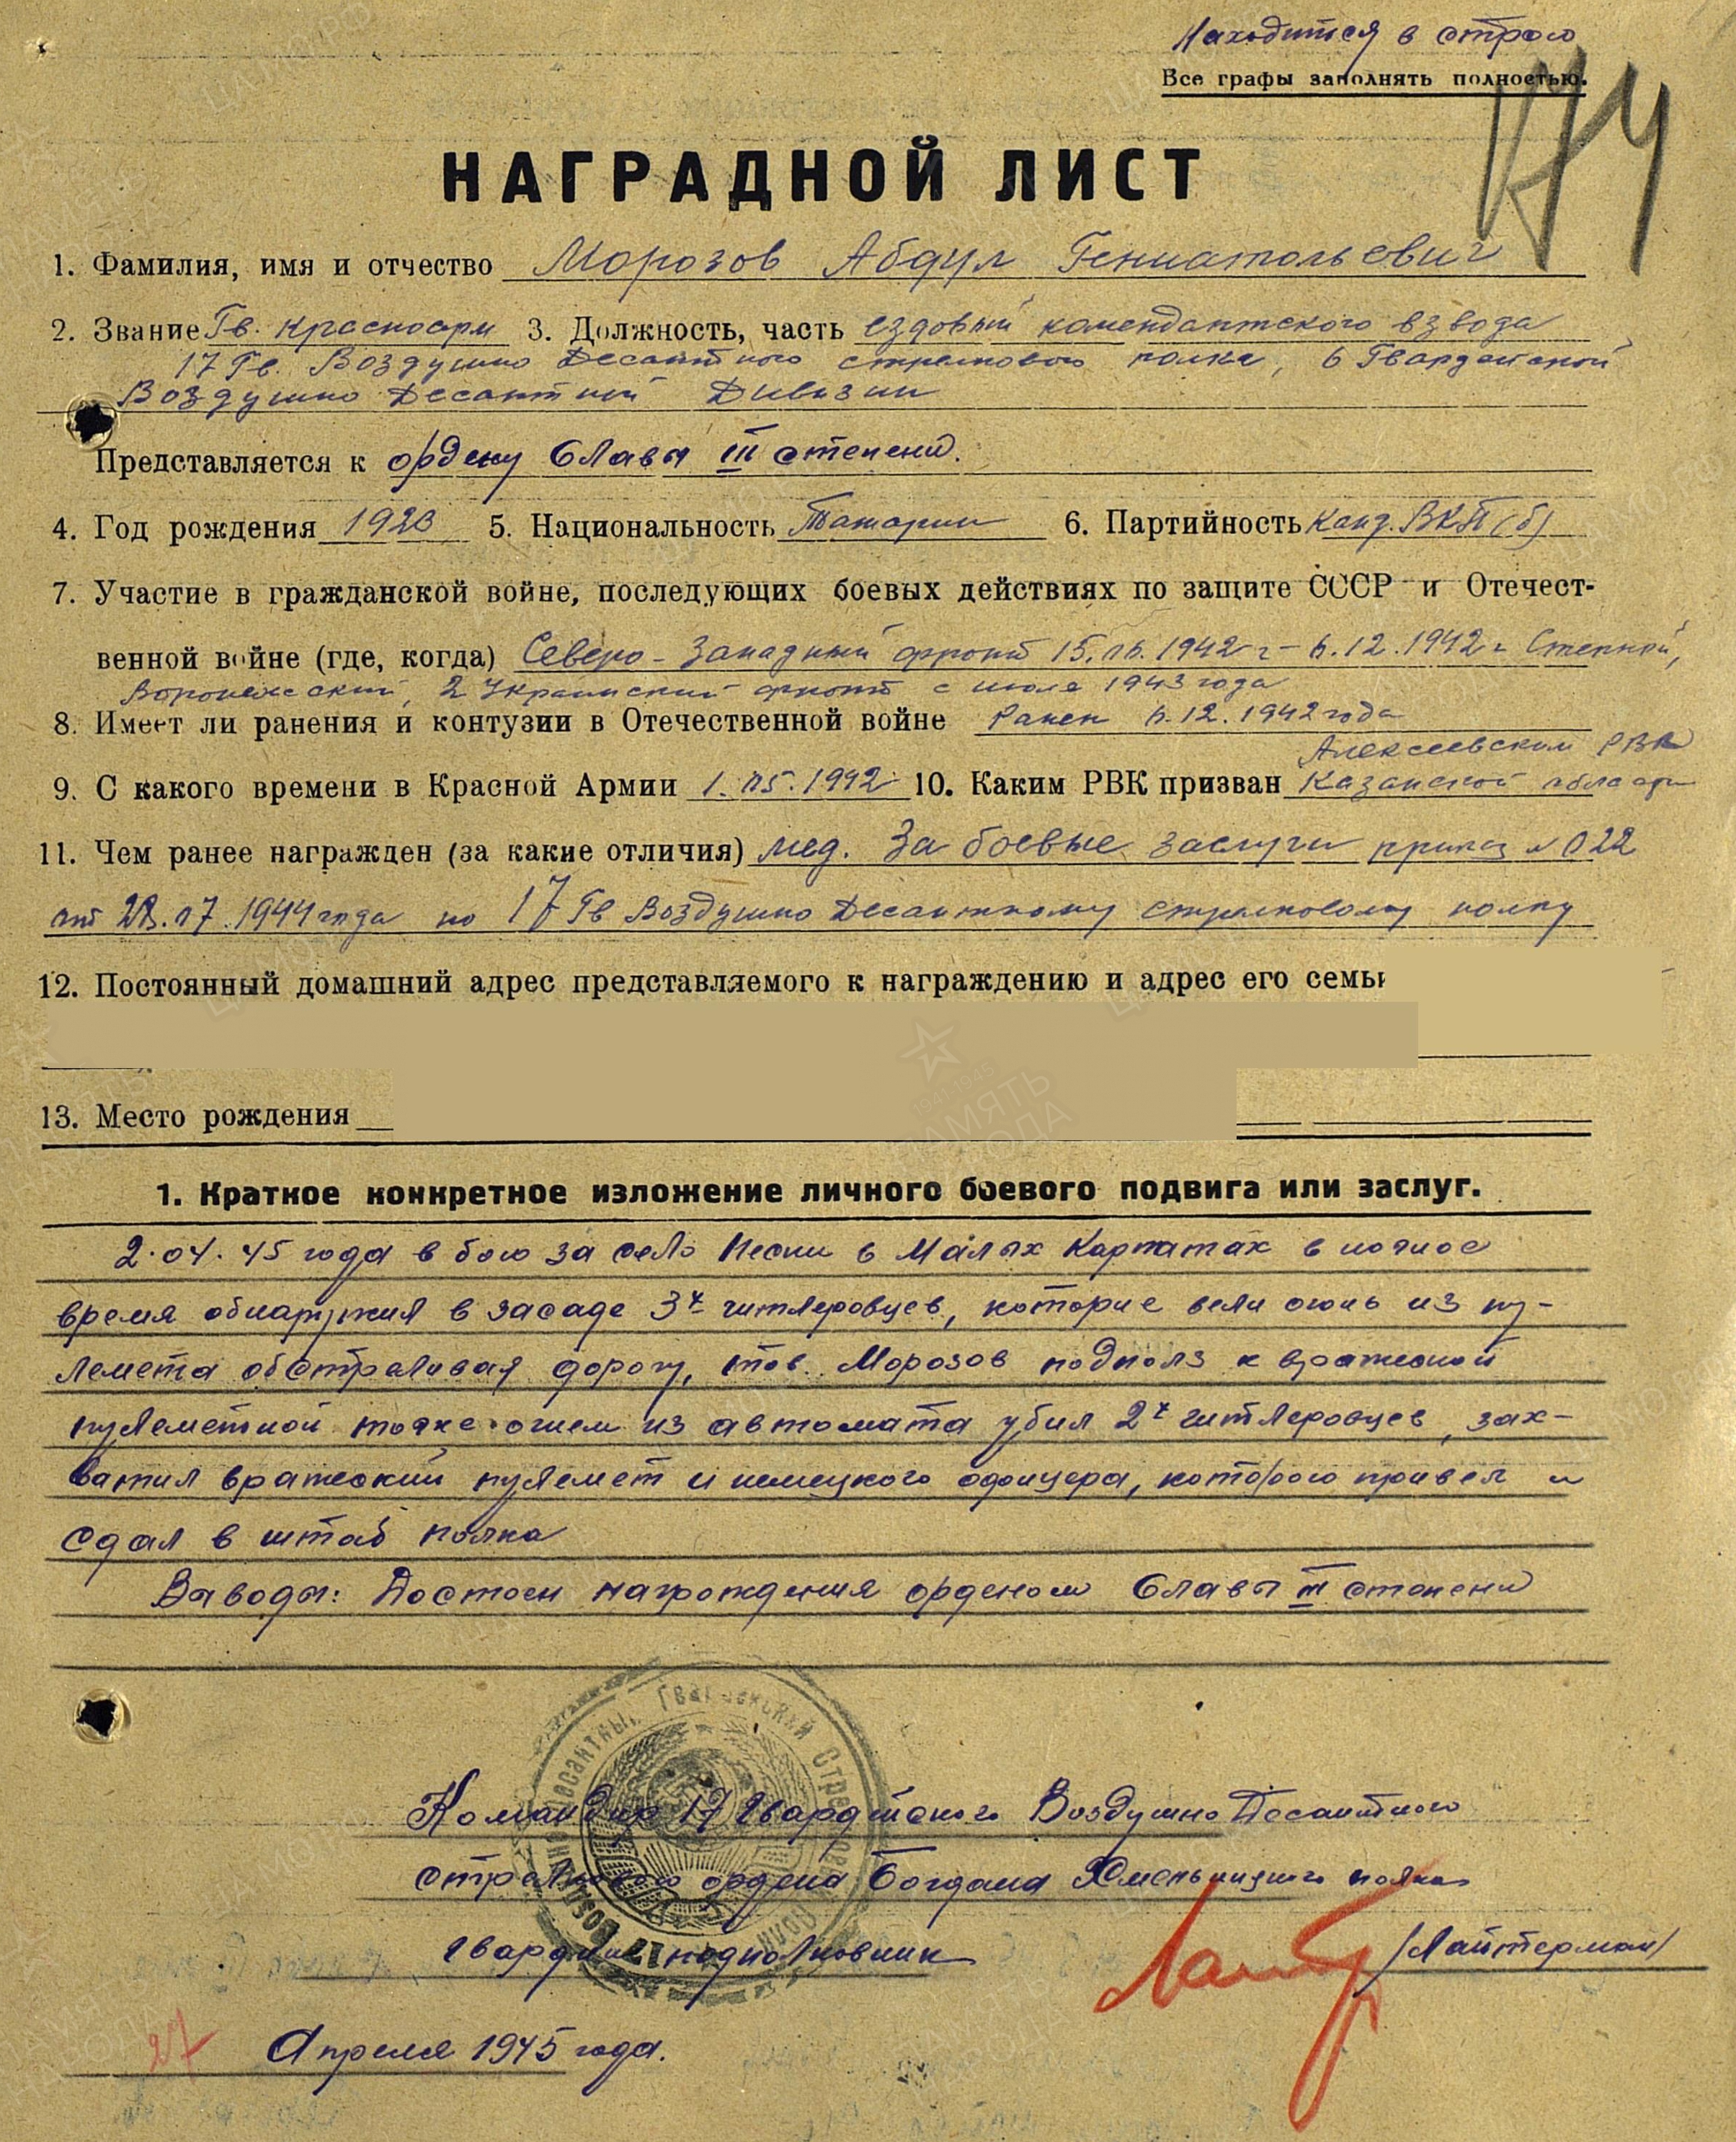 Находится в строю
Все графы заполнять полностью.
НАГРАДНОЙ ЛИСТ
1. Фамилия, имя и отчество Морозов Абдул Гениатольевич
2. Звание Гв. красноарм 3. Должность, часть ездовый комендантского взвода
17 Гв. Воздушно Десантного стрелкового полка, 6 Гвардейской
Воздушно Десантной Дивизии
Представляется к ордену Славы III степени.
4. Год рождения 1923 5. Национальность Татарин 6. Партийность Канд. ВКП(б)
7. Участие в гражданской войне, последующих боевых действиях по защите СССР и Отечест-
венной войне (где, когда) Северо-Западный фронт 15. 1942 г - 6.12.1942 г Степной,
Воронежский, 2 Украинский фронт с июля 1943 года
8. Имеет ли ранения и контузии в Отечественной войне Ранен 6.12.1942 года
Алексеевским РВК
9. С какого времени в Красной Армии 1.05.1942 10. Каким РВК призван Казанской области
11. Чем ранее награжден (за какие отличия) мед. За боевые заслуги приказ № 022
от 07.1944 года по 17 Гв Воздушно Десантному стрелковому полку
12. Постоянный домашний адрес представляемого к награждению и адрес его семьи
13. Место рождения
1. Краткое конкретное изложение личного боевого подвига или заслуг.
2.04.45 года в бою за село в Малых Карпатах в ночное
время обнаружил в засаде 3х гитлеровцев, которые вели огонь из пу-
лемета обстреливая дорогу, тов. Морозов подполз к вражеской
пулеметной точке огнем из автомата убил 2х гитлеровцев, зах-
ватил вражеский пулемет и немецкого офицера, которого привел и
сдал в штаб полка
Ваводы: Достоен награждения орденом Славы III степени
Командир 17 Гвардейского Воздушно Десантного
стрелкового ордена Богдана Хмельницкого полка
гвардии подполковник /Лайтерман/
27 Апреля 1945 года.